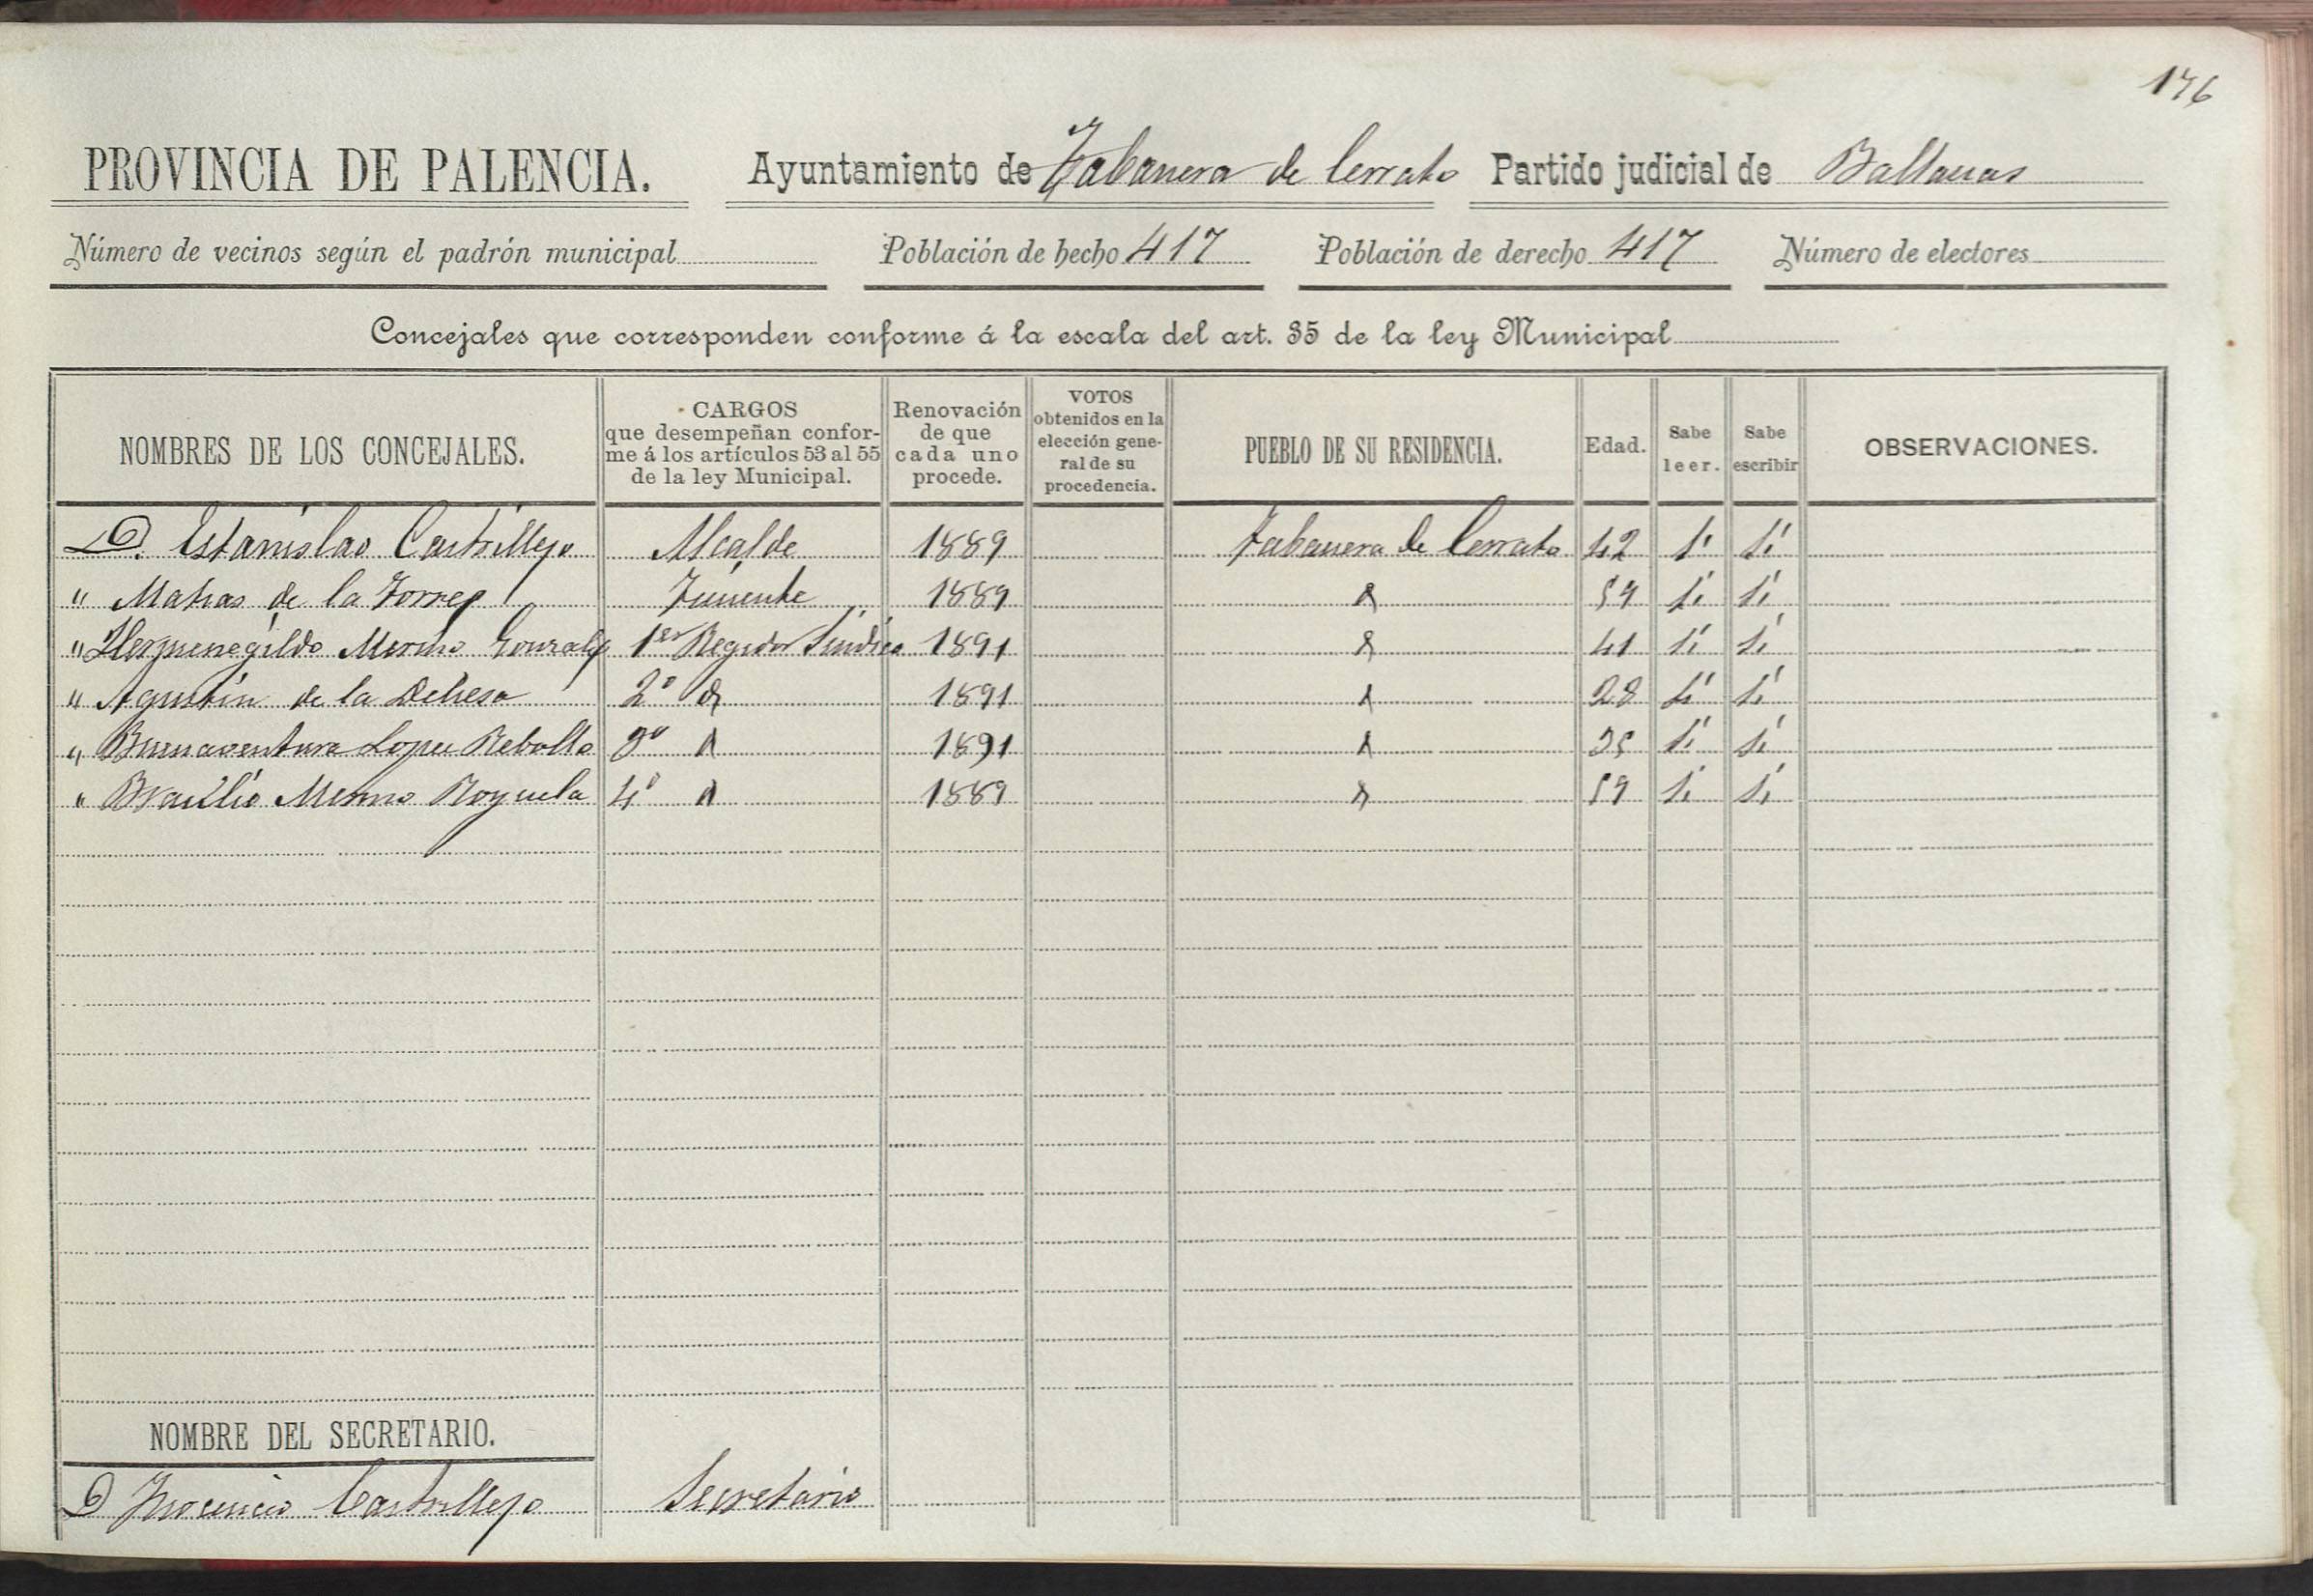 176
PROVINCIA DE PALENCIA. Ayuntamiento de Tabanera de Cerrato Partido judicial de Baltanas
Número de vecinos según el padrón municipal Población de hecho 417 Población de derecho 417 Número de electores
Concejales que corresponden conforme á la escala del art. 35 de la ley Municipal
NOMBRES DE LOS CONCEJALES. CARGOS que desempeñan conforme á los artículos 53 al 55 de la ley Municipal. Renovación de que cada uno procede. VOTOS obtenidos en la elección general de su procedencia. PUEBLO DE SU RESIDENCIA. Edad. Sabe leer. Sabe escribir OBSERVACIONES.
D. Estanislao Castrillejo Alcalde 1889 Tabanera de Cerrato 42 Si Si
" Matias de la Torre Teniente 1889 59 Si Si
" Hermenegildo Merino Gonzalez 1er Regidor Sindico 1891 41 Si Si
" Agustin de la Dehesa 2º 1891 28 Si Si
" Buenaventura Lopez Rebollo 3º 1891 35 Si Si
" Braulio Merino Royuela 4º 1889 59 Si Si
NOMBRE DEL SECRETARIO.
D Inocencio Castrillejo Secretario